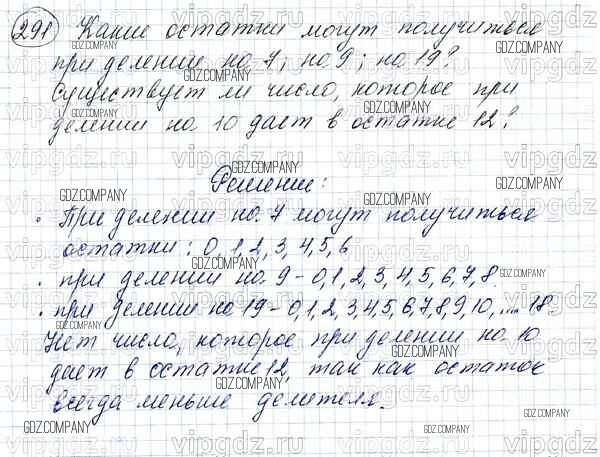 291 Какие остатки могут получиться
при делении на 7; на 9; на 19?
Существует ли число, которое при
делении на 10 дает в остатке 12?
Решение:
• При делении на 7 могут получиться
остатки: 0,1,2,3,4,5,6
• при делении на 9 - 0,1,2,3,4,5,6,7,8.
• при делении на 19 - 0,1,2,3,4,5,6,7,8,9,10, ... 18.
Нет числа, которое при делении на 10
дает в остатке 12, так как остаток
всегда меньше делителя.